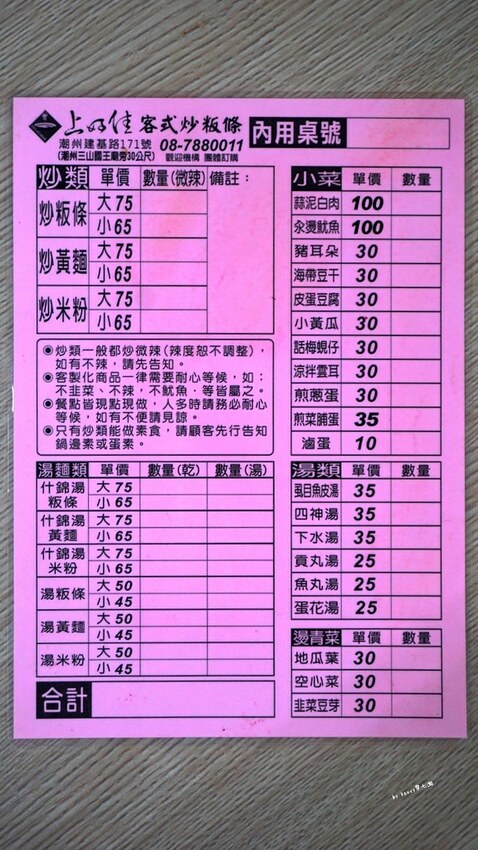 上好佳 客式炒粄條
潮州建基路171號 08-7880011
(潮州三山國王廟旁30公尺) 歡迎機構 團體訂購
內用桌號
炒類 單價 數量(微辣) 備註：
炒粄條 大75
小65
炒黃麵 大75
小65
炒米粉 大75
小65
◉炒類一般都炒微辣(辣度恕不調整)，
如有不辣，請先告知。
◉客製化商品一律需要耐心等候，如：
不韭菜、不辣，不魷魚．等皆屬之。
◉餐點皆現點現做，人多時請務必耐心
等候，如有不便請見諒。
◉只有炒類能做素食，請顧客先行告知
鍋邊素或蛋素。
湯麵類 單價 數量(乾) 數量(湯)
什錦湯 大75
粄條 小65
什錦湯 大75
黃麵 小65
什錦湯 大75
米粉 小65
湯粄條 大50
小45
湯黃麵 大50
小45
湯米粉 大50
小45
合計
小菜 單價 數量
蒜泥白肉 100
汆燙魷魚 100
豬耳朵 30
海帶豆干 30
皮蛋豆腐 30
小黃瓜 30
話梅蜆仔 30
涼拌雲耳 30
煎蔥蛋 30
煎菜脯蛋 35
滷蛋 10
湯類 單價 數量
虱目魚皮湯 35
四神湯 35
下水湯 35
貢丸湯 25
魚丸湯 25
蛋花湯 25
燙青菜 單價 數量
地瓜葉 30
空心菜 30
韭菜豆芽 30